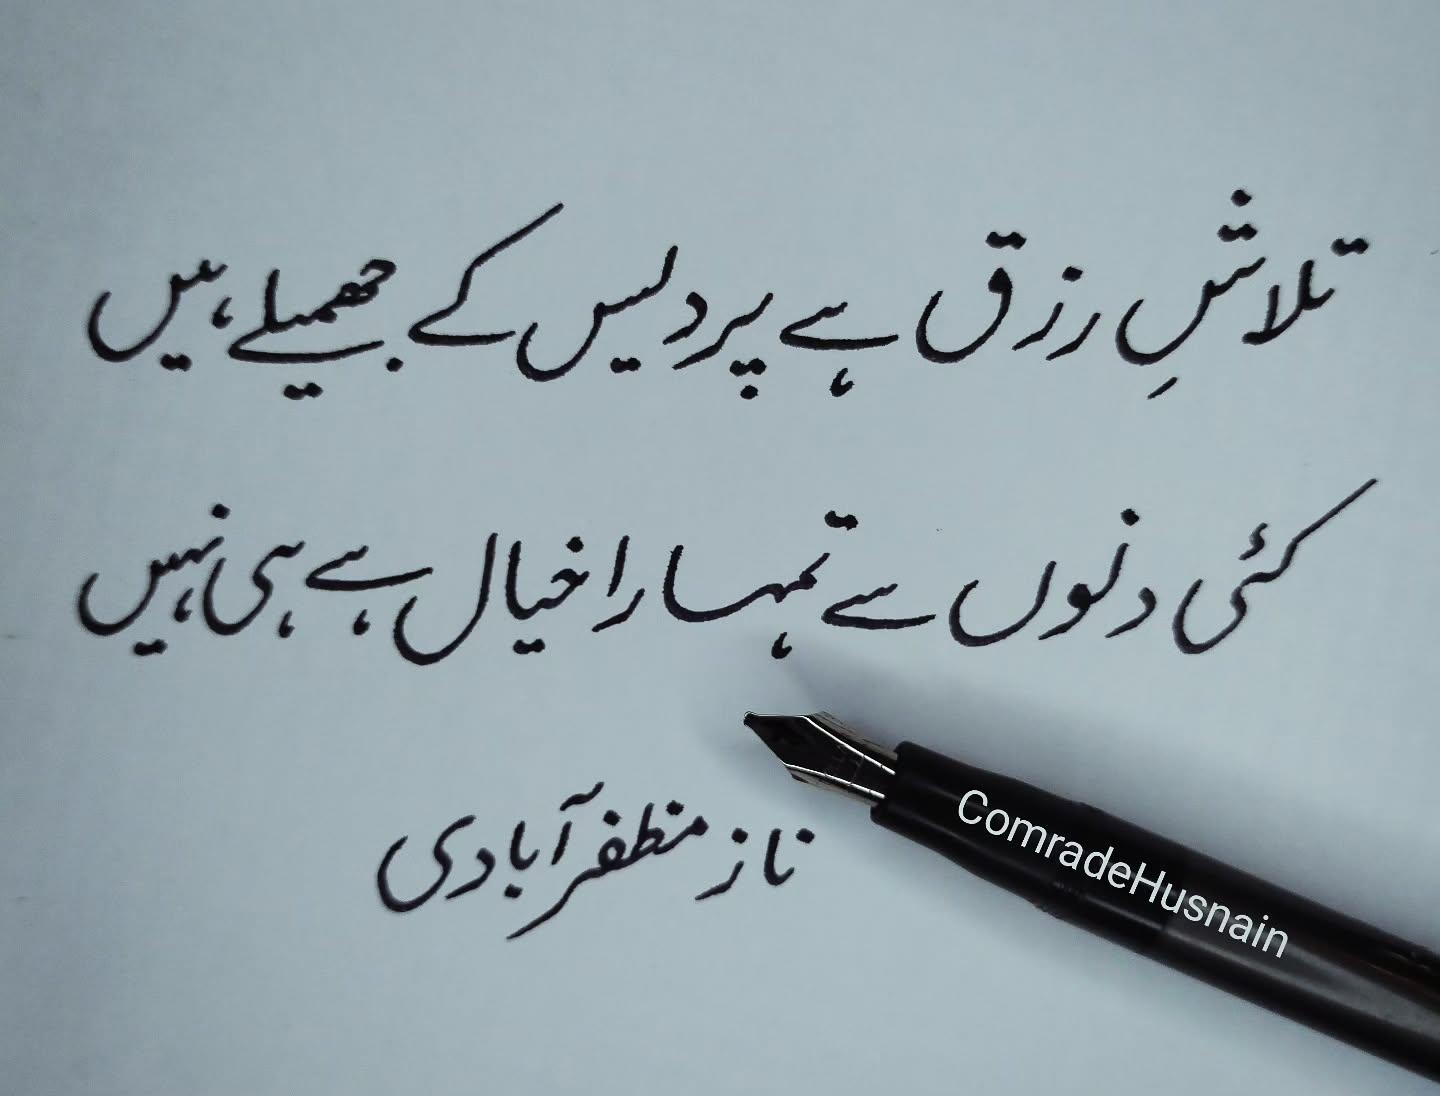 تلاشِ رزق ہے پردیس کے جھمیلے ہیں
کئی دنوں سے تمہارا خیال ہے ہی نہیں
ناز مظفر آبادی
ComradeHusnain